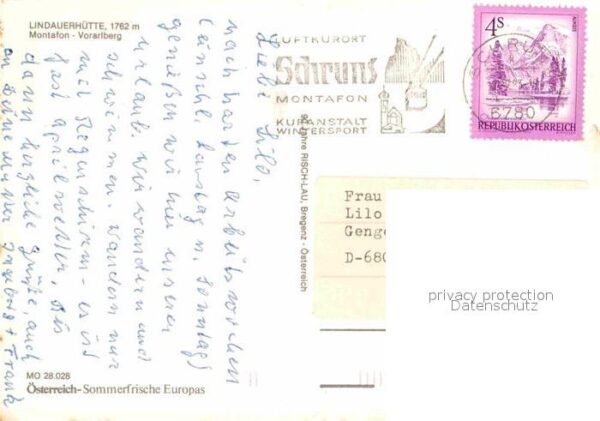 LINDAUERHÜTTE, 1762 m
Montafon - Vorarlberg
Liebe Lilo,
nach harten Arbeitswochen
(einschl. Samstag u. Sonntag)
genießen wir hier unseren
Urlaub. Wir wandern und
schwimmen. Wandern nur
mit Regenschirm - es ist
fast Aprilwetter. Bis
dann herzliche Grüße, auch
an Deine Mutter Ingeborg + Frank
MO 28.028
Österreich-Sommerfrische Europas
90 Jahre RISCH-LAU, Bregenz - Österreich
LUFTKURORT
Schruns
MONTAFON
KURANSTALT
WINTERSPORT
SCHRUNS
6780
4S
REPUBLIK ÖSTERREICH
Frau
Lilo
Genge
D-680
privacy protection
Datenschutz